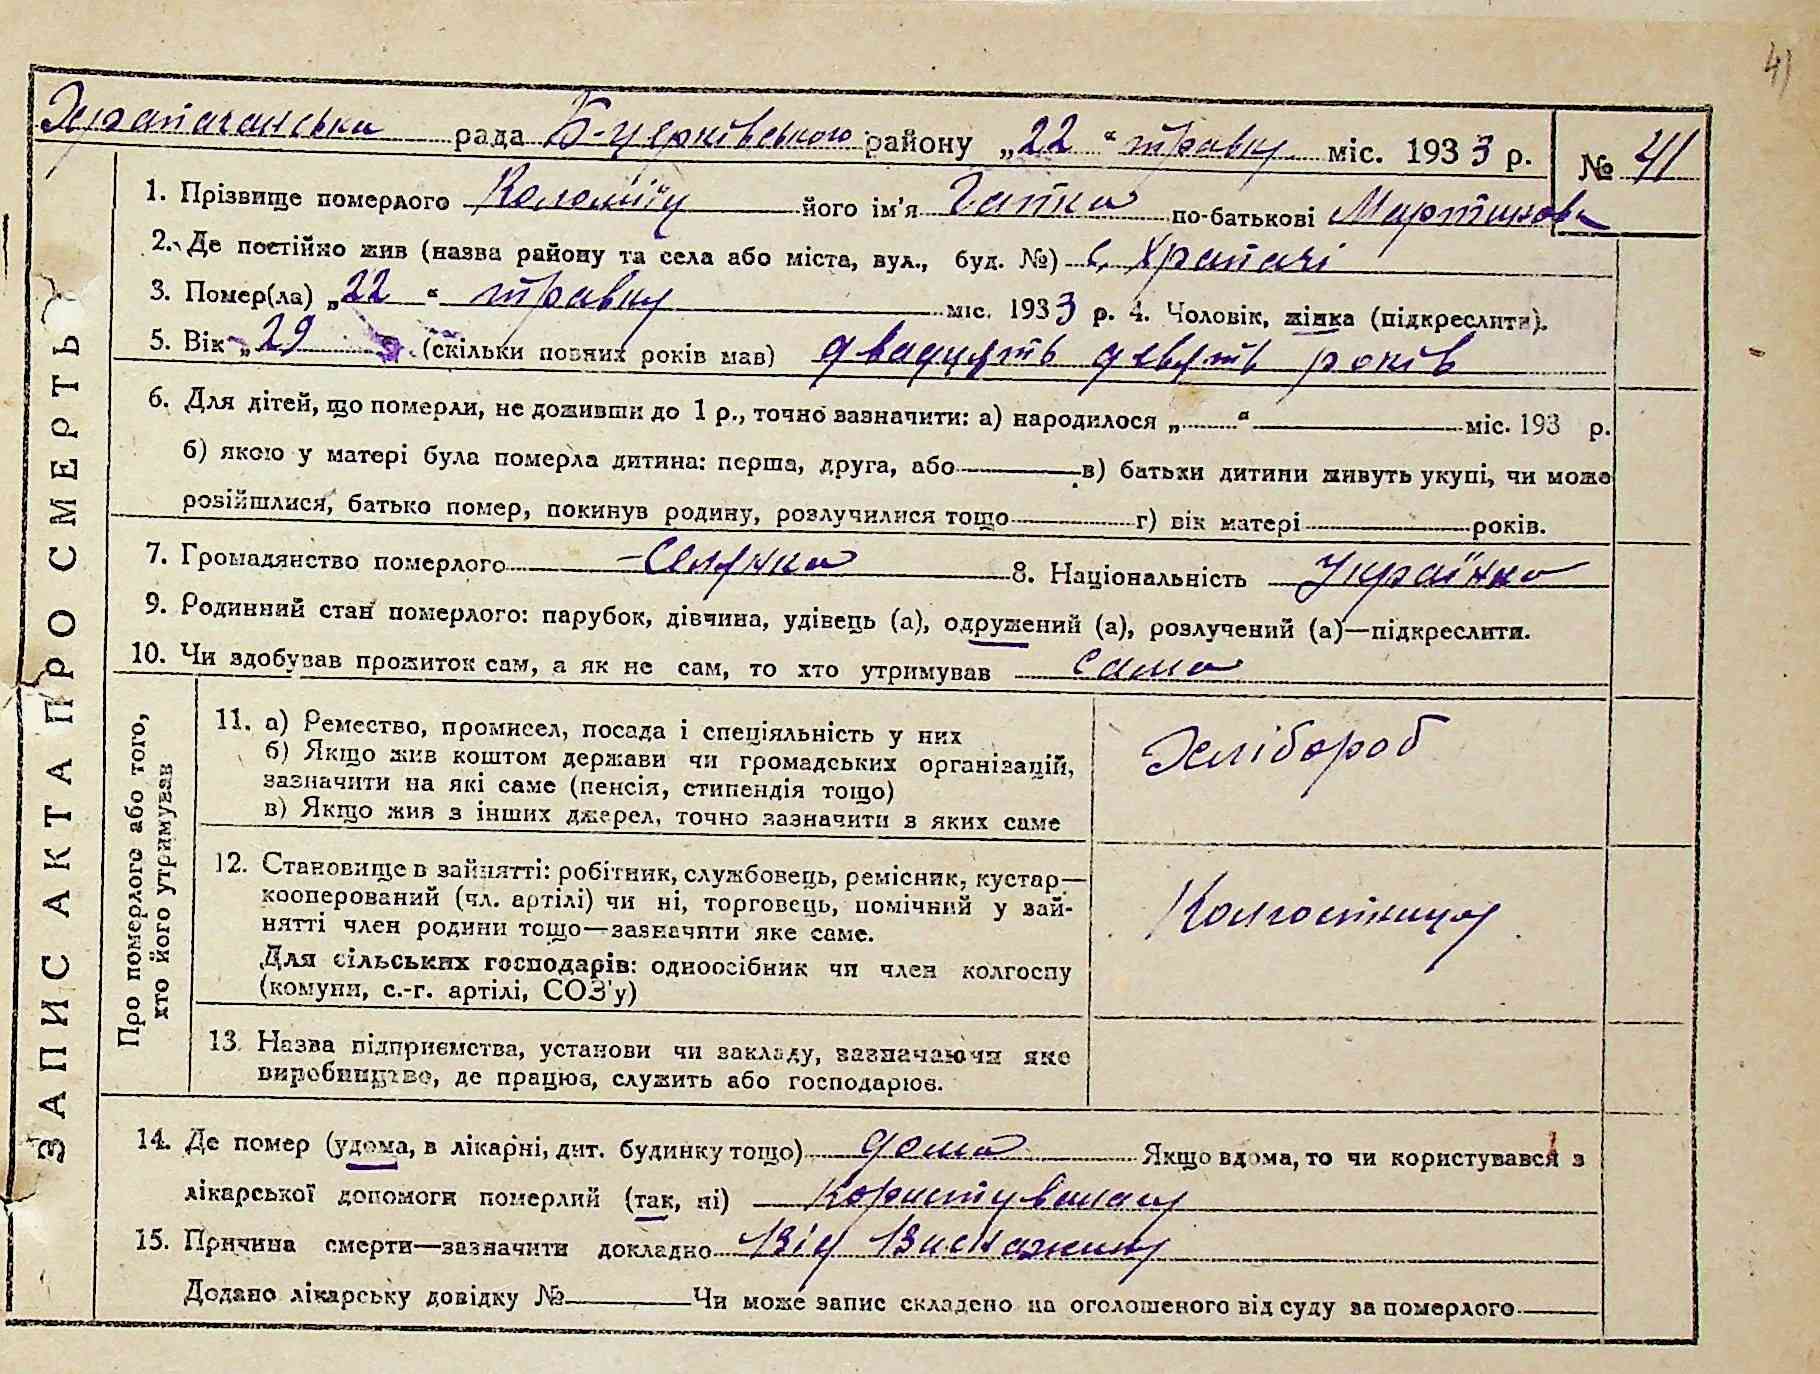 41
Храпачанська рада Б-Церківського району „22“ травня міс. 1933 р. № 41
1. Прізвище померлого Коломієць його ім'я по-батькові Мартинова
2. Де постійно жив (назва району та села або міста, вул., буд. №) с. Храпачі
3. Помер(ла) „22“ травня міс. 1933 р. 4. Чоловік, жінка (підкреслити).
5. Вік „29 (скільки повних років мав) двадцять девять років
6. Для дітей, що померли, не доживши до 1 р., точно зазначити: а) народилося „ “ міс. 193 р.
б) якою у матері була померла дитина: перша, друга, або в) батьки дитини живуть укупі, чи може
розійшлися, батько помер, покинув родину, розлучилися тощо г) вік матері років.
7. Громадянство померлого Селянка 8. Національність Українка
9. Родинний стан померлого: парубок, дівчина, удівець (а), одружений (а), розлучений (а)—підкреслити.
10. Чи здобував прожиток сам, а як не сам, то хто утримував сама
ЗАПИС АКТА ПРО СМЕРТЬ
Про померлого або того,
хто його утримував
11. а) Ремество, промисел, посада і спеціяльність у них
б) Якщо жив коштом держави чи громадських організацій,
зазначити на які саме (пенсія, стипендія тощо)
в) Якщо жив з інших джерел, точно зазначити з яких саме
Хлібороб
12. Становище в зайнятті: робітник, службовець, ремісник, кустар—
кооперований (чл. артілі) чи ні, торговець, помічний у зай-
нятті член родини тощо—зазначити яке саме.
Для сільських господарів: одноосібник чи член колгоспу
(комуни, с.-г. артілі, СОЗ'у)
Колгоспниця
13. Назва підприємства, установи чи закладу, зазначаючи яке
виробництво, де працює, служить або господарює.
14. Де помер (удома, в лікарні, дит. будинку тощо) дома Якщо вдома, то чи користувався з
лікарської допомоги померлий (так, ні)
15. Причина смерти—зазначити докладно Від Виснаження
Додано лікарську довідку № Чи може запис складено на оголошеного від суду за померлого